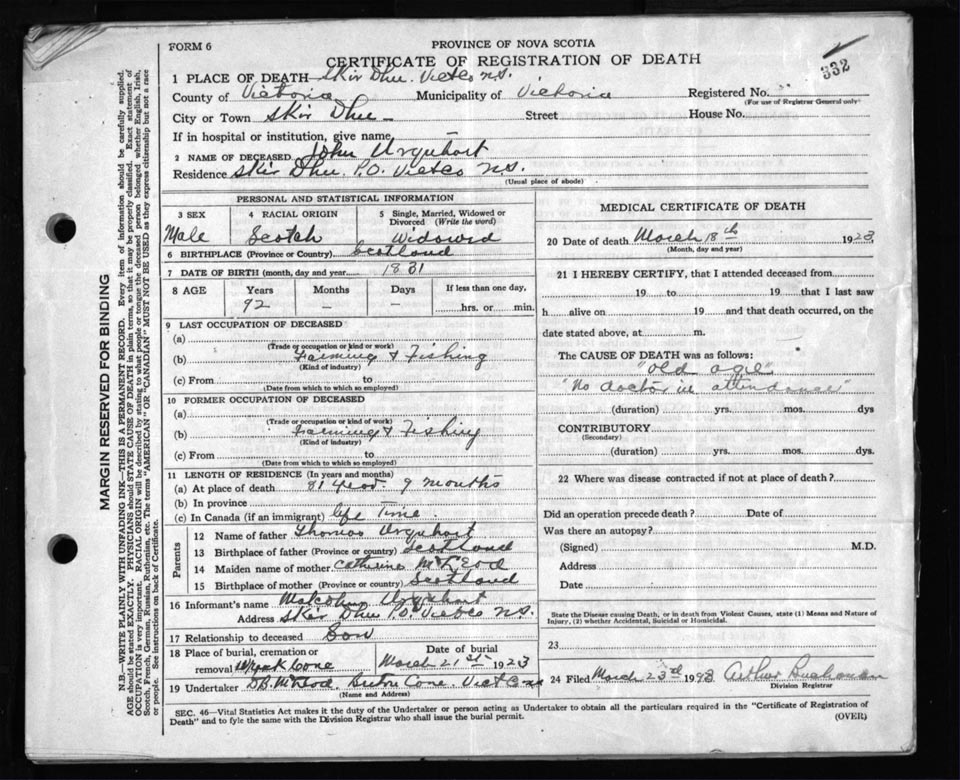 FORM 6
PROVINCE OF NOVA SCOTIA
CERTIFICATE OF REGISTRATION OF DEATH
332
1 PLACE OF DEATH Skir Dhu. Victco N.S.
County of Victoria Municipality of Victoria Registered No.
(For use of Registrar General only)
City or Town Skir Dhu Street House No.
If in hospital or institution, give name —
2 NAME OF DECEASED John Urquhart
Residence Skir Dhu. P.O. Victco N.S.
(Usual place of abode)
PERSONAL AND STATISTICAL INFORMATION
3 SEX 4 RACIAL ORIGIN 5 Single, Married, Widowed or Divorced (Write the word)
Male Scotch Widowed
6 BIRTHPLACE (Province or Country) Scotland
7 DATE OF BIRTH (month, day and year) 1831
8 AGE Years Months Days If less than one day,
92 — — hrs. or min.
9 LAST OCCUPATION OF DECEASED
(a)
(Trade or occupation or kind of work)
(b) Farming & Fishing
(Kind of industry)
(c) From to
(Date from which to which so employed)
10 FORMER OCCUPATION OF DECEASED
(a)
(Trade or occupation or kind of work)
(b) Farming & Fishing
(Kind of industry)
(c) From to
(Date from which to which so employed)
11 LENGTH OF RESIDENCE (In years and months)
(a) At place of death 81 9 months
(b) In province
(c) In Canada (if an immigrant) life Time
Parents
12 Name of father Thomas Urquhart
13 Birthplace of father (Province or country) Scotland
14 Maiden name of mother Catherine McLeod
15 Birthplace of mother (Province or country) Scotland
16 Informant's name Malcolm Urquhart
Address Skir Dhu P.O. Victco N.S.
17 Relationship to deceased Son
18 Place of burial, cremation or removal Wreck Cove
Date of burial March 21st 1923
19 Undertaker D.B. McLeod, Cove. Vict Co
(Name and Address)
MEDICAL CERTIFICATE OF DEATH
20 Date of death March 18th 1923.
(Month, day and year)
21 I HEREBY CERTIFY, that I attended deceased from
19 to 19 that I last saw
h alive on 19 and that death occurred, on the
date stated above, at m.
The CAUSE OF DEATH was as follows:
"old age"
"No doctor in attendance"
(duration) yrs. mos. dys
CONTRIBUTORY
(Secondary)
(duration) yrs. mos. dys.
22 Where was disease contracted if not at place of death?
Did an operation precede death? Date of
Was there an autopsy?
(Signed) M.D.
Address
Date
State the Disease causing Death, or in death from Violent Causes, state (1) Means and Nature of
Injury, (2) whether Accidental, Suicidal or Homicidal.
23
24 Filed March 23rd 1923 Arthur Buchanan
Division Registrar
SEC. 46—Vital Statistics Act makes it the duty of the Undertaker or person acting as Undertaker to obtain all the particulars required in the "Certificate of Registration of
Death" and to fyle the same with the Division Registrar who shall issue the burial permit.
(OVER)
MARGIN RESERVED FOR BINDING
N.B.—WRITE PLAINLY WITH UNFADING INK—THIS IS A PERMANENT RECORD. Every item of information should be carefully supplied.
AGE should be stated EXACTLY. PHYSICIANS should STATE CAUSE OF DEATH in plain terms, so that it may be properly classified. Exact statement of
OCCUPATION is very important. RACIAL ORIGIN will be described by stating to what people or tongue the deceased person belonged whether English, Irish,
Scotch, French, German, Russian, Ruthenian, etc. The terms "AMERICAN" or "CANADIAN" MUST NOT BE USED as they express citizenship but not a race
or people. See instructions on back of Certificate.